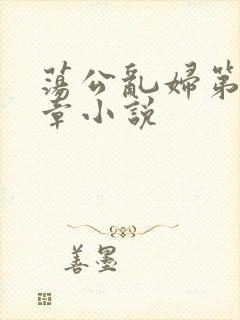 蕩公亂婦第
章小說
善墨